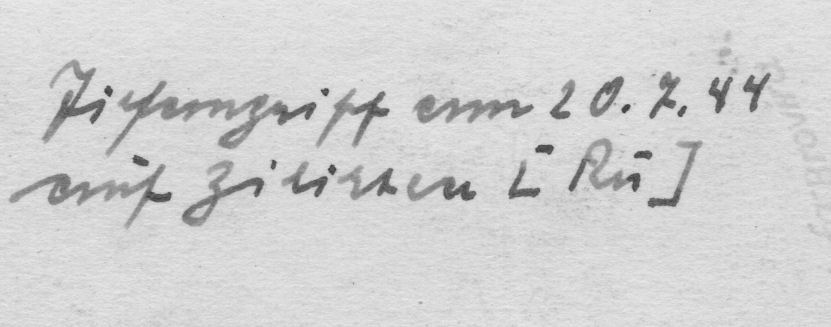 Tiefangriff am 20.7.44
auf Zilistea [Ru]